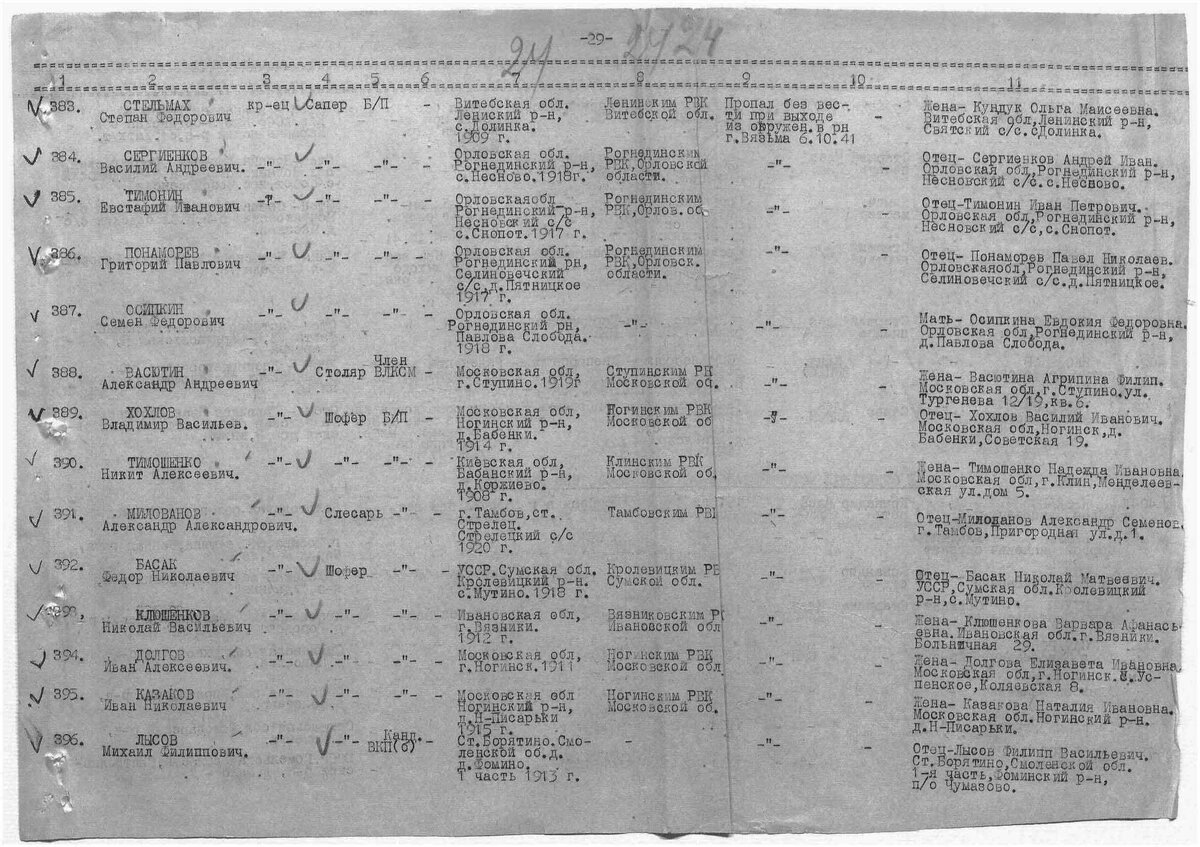 -29-
24 24 24
1 2 3 4 5 6 7 8 9 10 11
383. СТЕЛЬМАХ Степан Федорович кр-ец Сапер Б/П - Витебская обл. Лениский р-н, с.Долинка. 1909 г. Ленинским РВК Витебской обл. Пропал без вес- ти при выходе из окружен.в рн г.Вязьма 6.10.41 - Жена- Кундук Ольга Маисеевна. Витебская обл,Ленинский р-н, Святский с/с.сДолинка.
384. СЕРГИЕНКОВ Василий Андреевич. -"- -"- -"- - Орловская обл. Рогнединский р-н, с.Несново.1918г. Рогнединским РВК,Орловской области. -"- - Отец- Сергиенков Андрей Иван. Орловская обл,Рогнединский р-н, Несновский с/с.с.Несново.
385. ТИМОНИН Евстафий Иванович -"- -"- -"- - Орловскаяобл Рогнединский р-н, Несновский с/с с.Снопот.1917 г. Рогнединским РВК,Орлов.об. -"- - Отец-Тимонин Иван Петрович. Орловская обл,Рогнединский р-н, Несновский с/с,с.Снопот.
386. ПОНАМОРЕВ Григорий Павлович -"- -"- -"- - Орловская обл. Рогнединский рн, Селиновечский с/с.д.Пятницкое 1917 г. Рогнединским РВК,Орловск. области. -"- - Отец- Понаморев Павел Николаев. Орловскаяобл,Рогнединский р-н, Селиновечский с/с.д.Пятницкое.
387. ОСИПКИН Семен Федорович -"- -"- -"- - Орловская обл. Рогнединский рн, Павлова Слобода. 1918 г. -"- -"- - Мать- Осипкина Евдокия Федоровна. Орловская обл,Рогнединский р-н, д.Павлова Слобода.
388. ВАСЮТИН Александр Андреевич -"- Столяр Член ВЛКСМ - Московская обл, г.Ступино.1919г Ступинским РВ Московской об. -"- - Жена- Васютина Агрипина Филип. Московская обл,г.Ступино.ул. Тургенева 12/19,кв.6.
389. ХОХЛОВ Владимир Васильев. -"- Шофер Б/П - Московская обл, Ногинский р-н, д.Бабенки. 1914 г. Ногинским РВК Московской об -"- - Отец- Хохлов Василий Иванович. Московская обл,Ногинск,д. Бабенки,Советская 19.
390. ТИМОШЕНКО Никит Алексеевич. -"- -"- -"- - Киевская обл, Бабанский р-н, д.Коржиево. 1908 г. Клинским РВК Московской об. -"- - Жена- Тимошенко Надежда Ивановна. Московская обл,г.Клин,Менделеев- ская ул.дом 5.
391. МИЛОВАНОВ Александр Александрович. -"- Слесарь -"- - г.Тамбов,ст. Стрелец. Стрелецкий с/с 1920 г. Тамбовским РВК -"- - Отец-Милованов Александр Семенов. г.Тамбов,Пригородная ул.д.1.
392. БАСАК Федор Николаевич -"- Шофер -"- - УССР.Сумская обл. Кролевицкий р-н. с.Мутино.1918 г. Кролевицким РВ Сумской обл. -"- - Отец- Басак Николай Матвеевич. УССР,Сумская обл.Кролевицкий р-н,с.Мутино.
393. КЛЮШЕНКОВ Николай Васильевич -"- -"- -"- - Ивановская обл, г.Вязники. 1912 г. Вязниковским РВ Ивановской обл -"- - Жена- Клюшенкова Варвара Афанась- евна.Ивановская обл.г.Вязники. Больничная 29.
394. ДОЛГОВ Иван Алексеевич. -"- -"- -"- - Московская обл, г.Ногинск.1911 Ногинским РВК Московской обл -"- - Жена- Долгова Елизавета Ивановна. Московская обл,г.Ногинск.с.Ус- пенское,Коляевская 8.
395. КАЗАКОВ Иван Николаевич -"- -"- -"- - Московская обл Ногинский р-н, д.Н-Писарьки 1915 г. Ногинским РВК Московской об. -"- - Жена- Казакова Наталия Ивановна. Московская обл.Ногинский р-н. д.Н-Писарьки.
396. ЛЫСОВ Михаил Филиппович. -"- -"- Канд. ВКП(б) - Ст.Борятино.Смо- ленской об.д. д.Фомино. 1 часть 1913 г. - -"- - Отец-Лысов Филипп Васильевич. Ст.Борятино,Смоленской обл. 1-я часть,Фоминский р-н, п/о Чумазово.